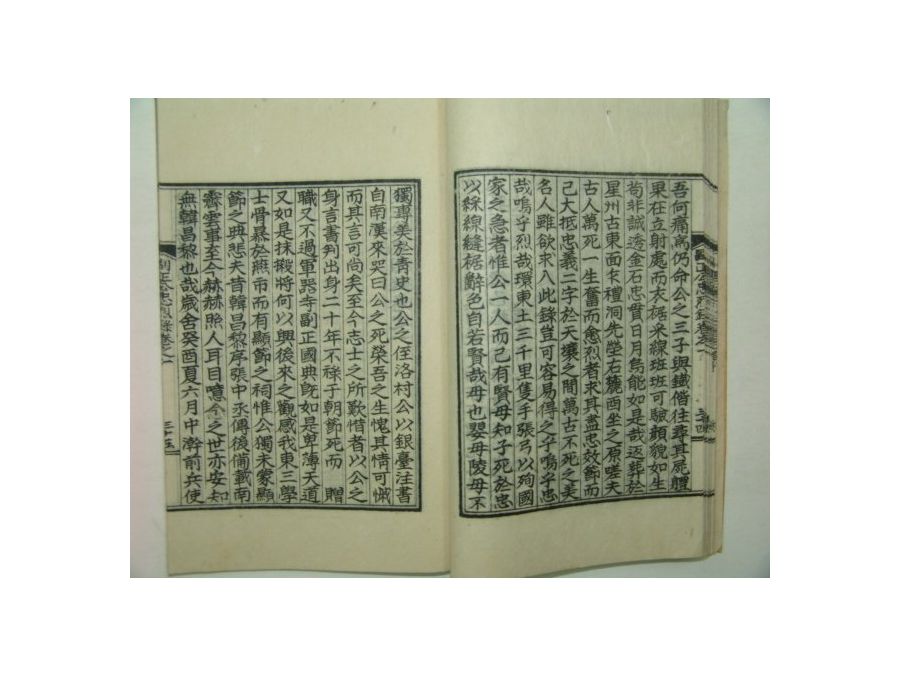 吾何痛焉仍命公之三子與鐵偕往尋其屍體
果在立射處而衣裾采線班班可驗顔貌如生
苟非誠透金石忠貫日月烏能如是哉返葬於
星州古東面玄禮洞先塋右麓酉坐之原嗟夫
古人萬死一生奮而愈烈者求其盡忠效節而
已大抵忠義二字於天壤之間萬古不死之美
名人雖欲求入此錄豈可容易得之乎嗚乎忠
哉嗚乎烈哉環東土三千里隻手張弓以徇國
家之急者惟公一人而已有賢母知子死於忠
以綵線縫裾辭色自若賢哉母也嬰母陵母不
獨專美於青史也公之侄洛村公以銀臺注書
自南漢來哭曰公之死榮吾之生愧其情可慽
而其言可尚矣至今志士之所歎惜者以公之
身言書判出身二十年不祿于朝節死而 贈
職又不過軍器寺副正國典旣如是卑薄天道
又如是抹摋將何以興後來之觀感我東三學
士骨暴於燕市而有顯節之祠惟公獨未蒙顯
節之典悲夫昔韓昌黎序張中丞傳後備載南
霽雲事至今赫赫照人耳目噫今之世亦安知
無韓昌黎也哉歲舍癸酉夏六月中澣前兵使
副正公忠烈錄卷之一
三十五